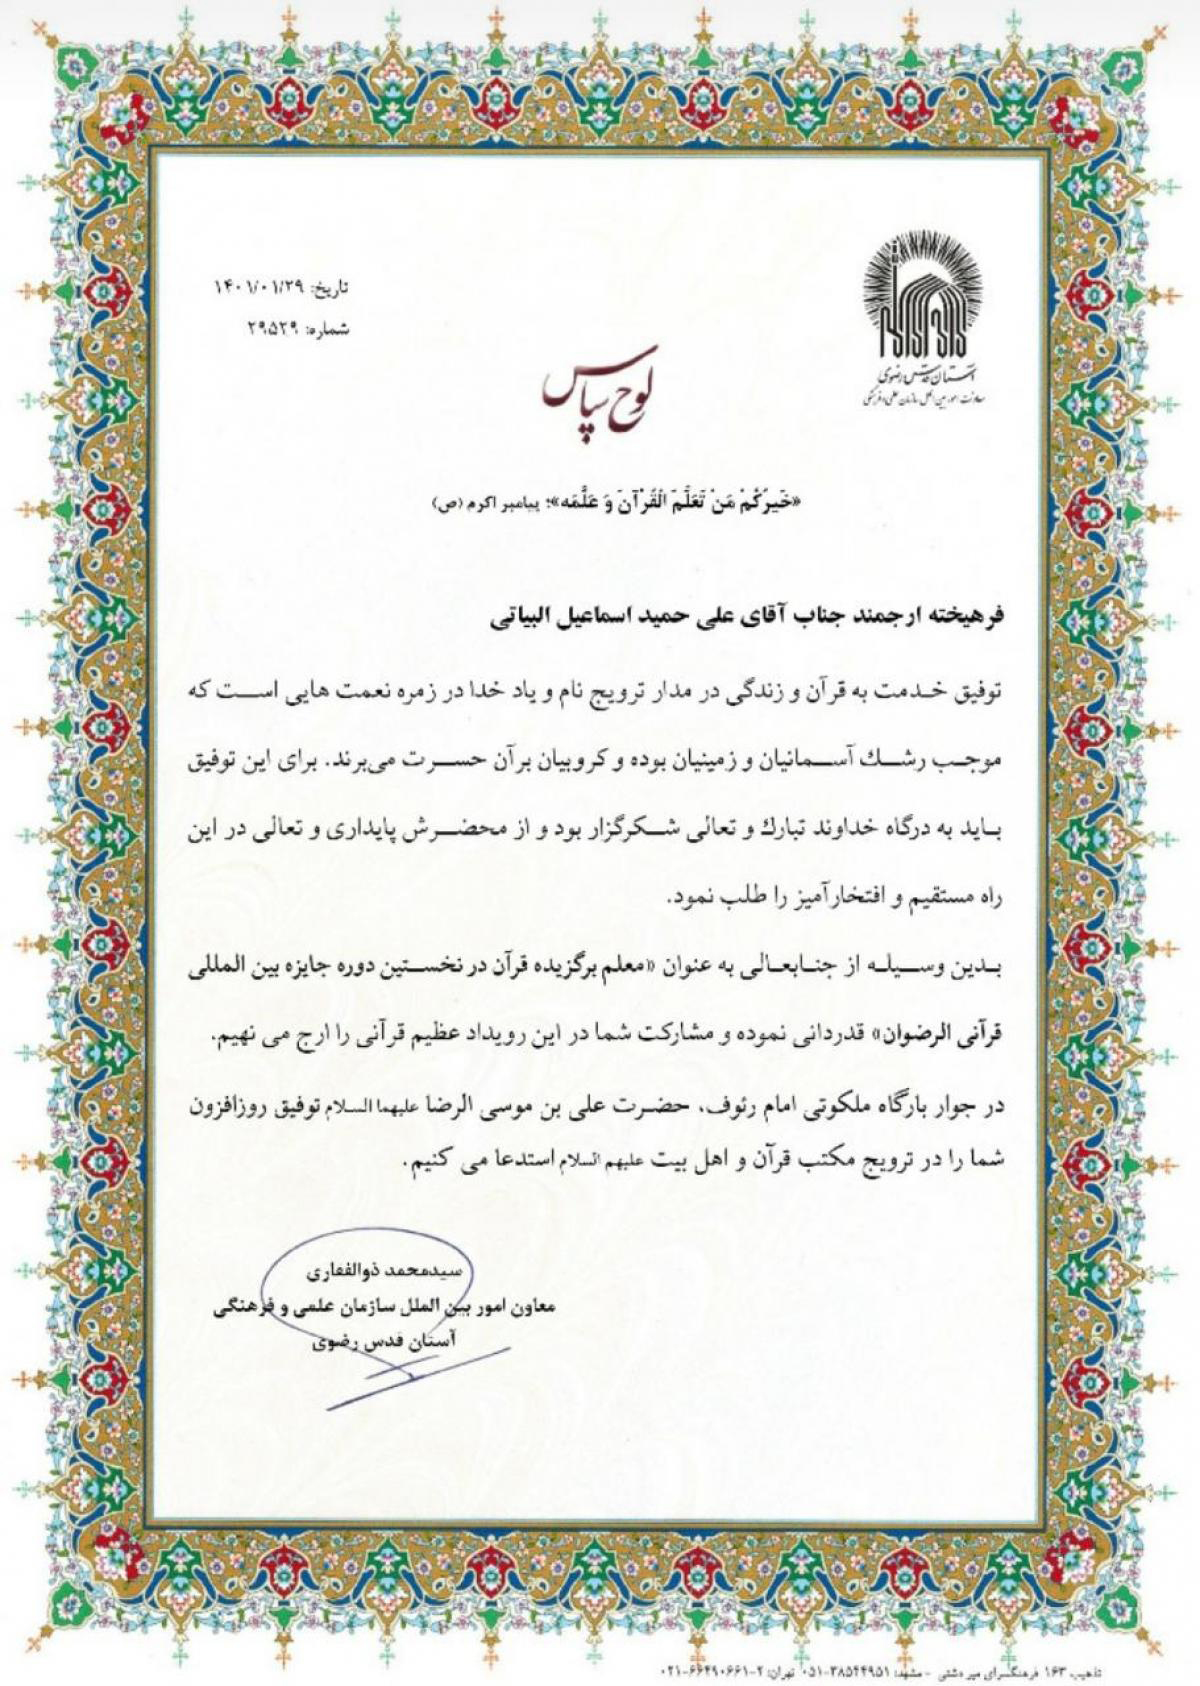 تاریخ: ۱۴۰۱/۰۱/۲۹
شماره: ۲۹۵۲۹
آستان قدس رضوی
معاونت امور بین الملل سازمان علمی و فرهنگی
لوح سپاس
«خَیرُکُمْ مَنْ تَعَلَّمَ الْقُرْآنَ وَ عَلَّمَه»؛ پیامبر اکرم (ص)
فرهیخته ارجمند جناب آقای علی حمید اسماعیل البیاتی
توفیق خدمت به قرآن و زندگی در مدار ترویج نام و یاد خدا در زمره نعمت هایی است که
موجب رشك آسمانیان و زمینیان بوده و کروبیان برآن حسرت می‌برند. برای این توفیق
باید به درگاه خداوند تبارك و تعالی شکرگزار بود و از محضرش پایداری و تعالی در این
راه مستقیم و افتخارآمیز را طلب نمود.
بدین وسیله از جنابعالی به عنوان «معلم برگزیده قرآن در نخستین دوره جایزه بین المللی
قرآنی الرضوان» قدردانی نموده و مشارکت شما در این رویداد عظیم قرآنی را ارج می نهیم.
در جوار بارگاه ملکوتی امام رئوف، حضرت علی بن موسی الرضا علیهما السلام توفیق روزافزون
شما را در ترویج مکتب قرآن و اهل بیت علیهم السلام استدعا می کنیم.
سیدمحمد ذوالفقاری
معاون امور بین الملل سازمان علمی و فرهنگی
آستان قدس رضوی
تذهیب ۱۶۳ فرهنگسرای میردشتی - مشهد: ۳۸۵۴۴۹۵۱-۰۵۱ تهران: ۲-۶۶۴۹۰۶۶۱-۰۲۱